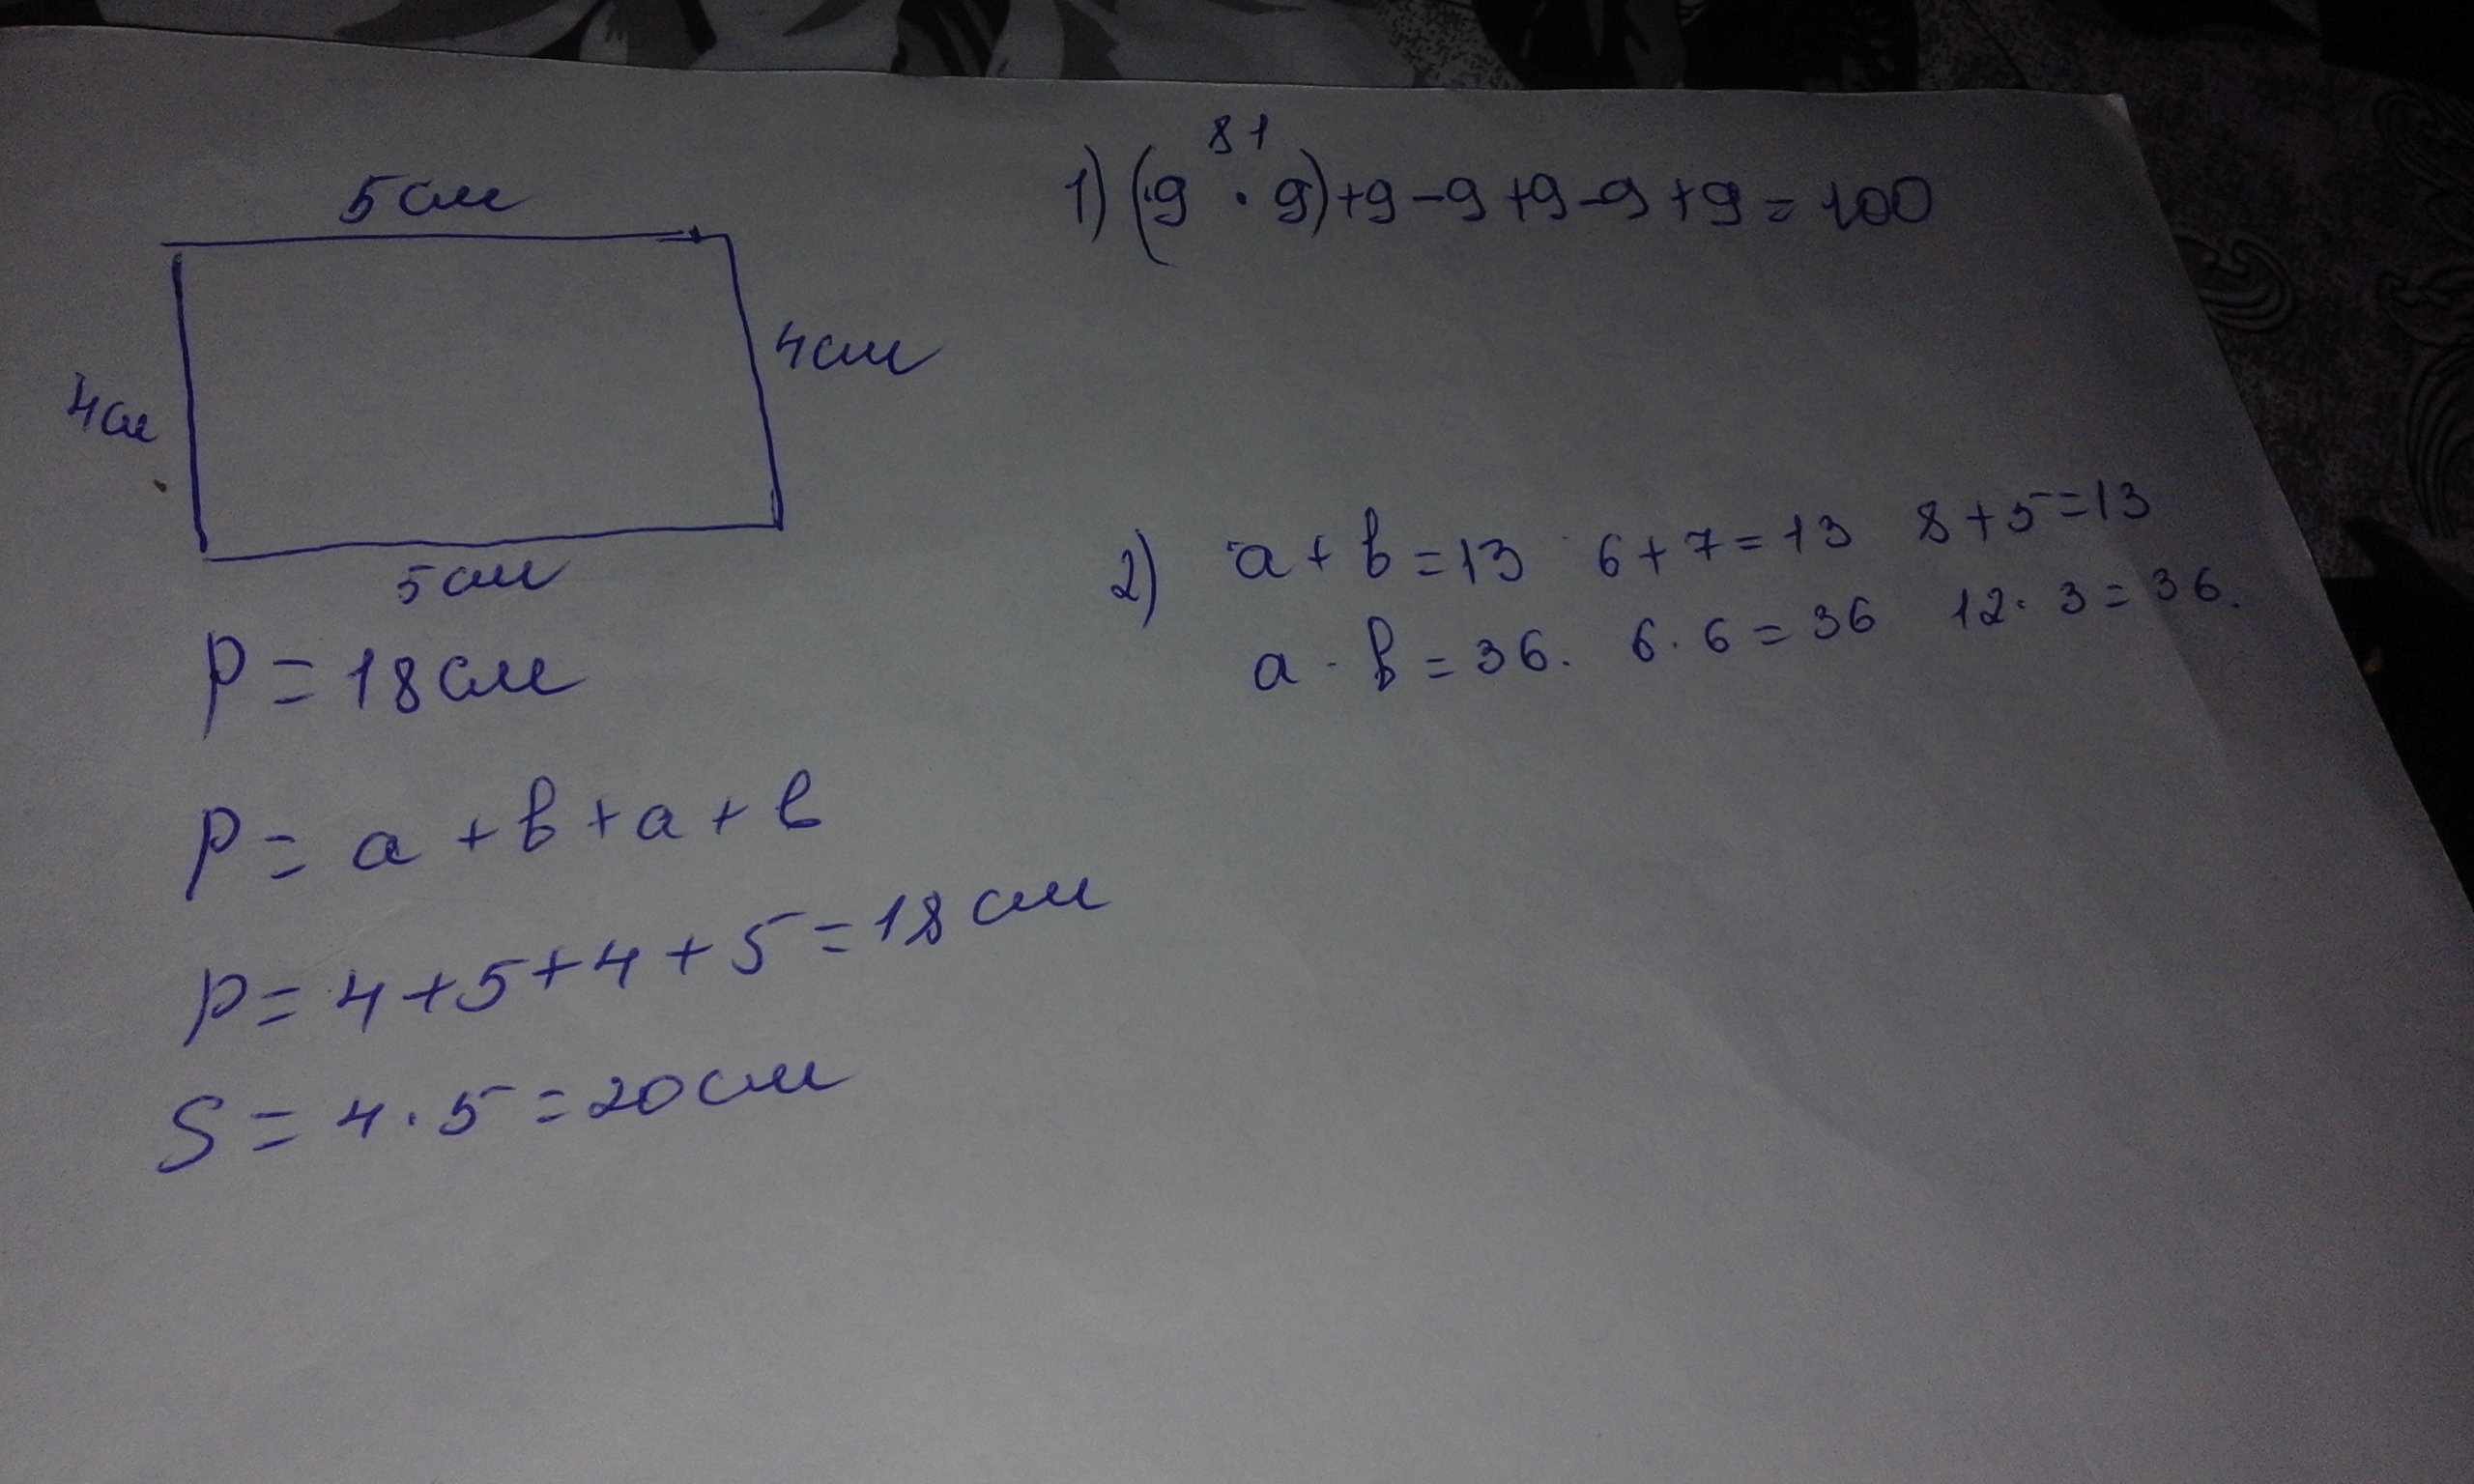 5 см
4 см
4 см
5 см
P = 18 см
P = a + b + a + b
P = 4 + 5 + 4 + 5 = 18 см
S = 4 · 5 = 20 см
81
1) (9 · 9) + 9 - 9 + 9 - 9 + 9 = 100
2) a + b = 13 6 + 7 = 13 8 + 5 = 13
a · b = 36. 6 · 6 = 36 12 · 3 = 36.